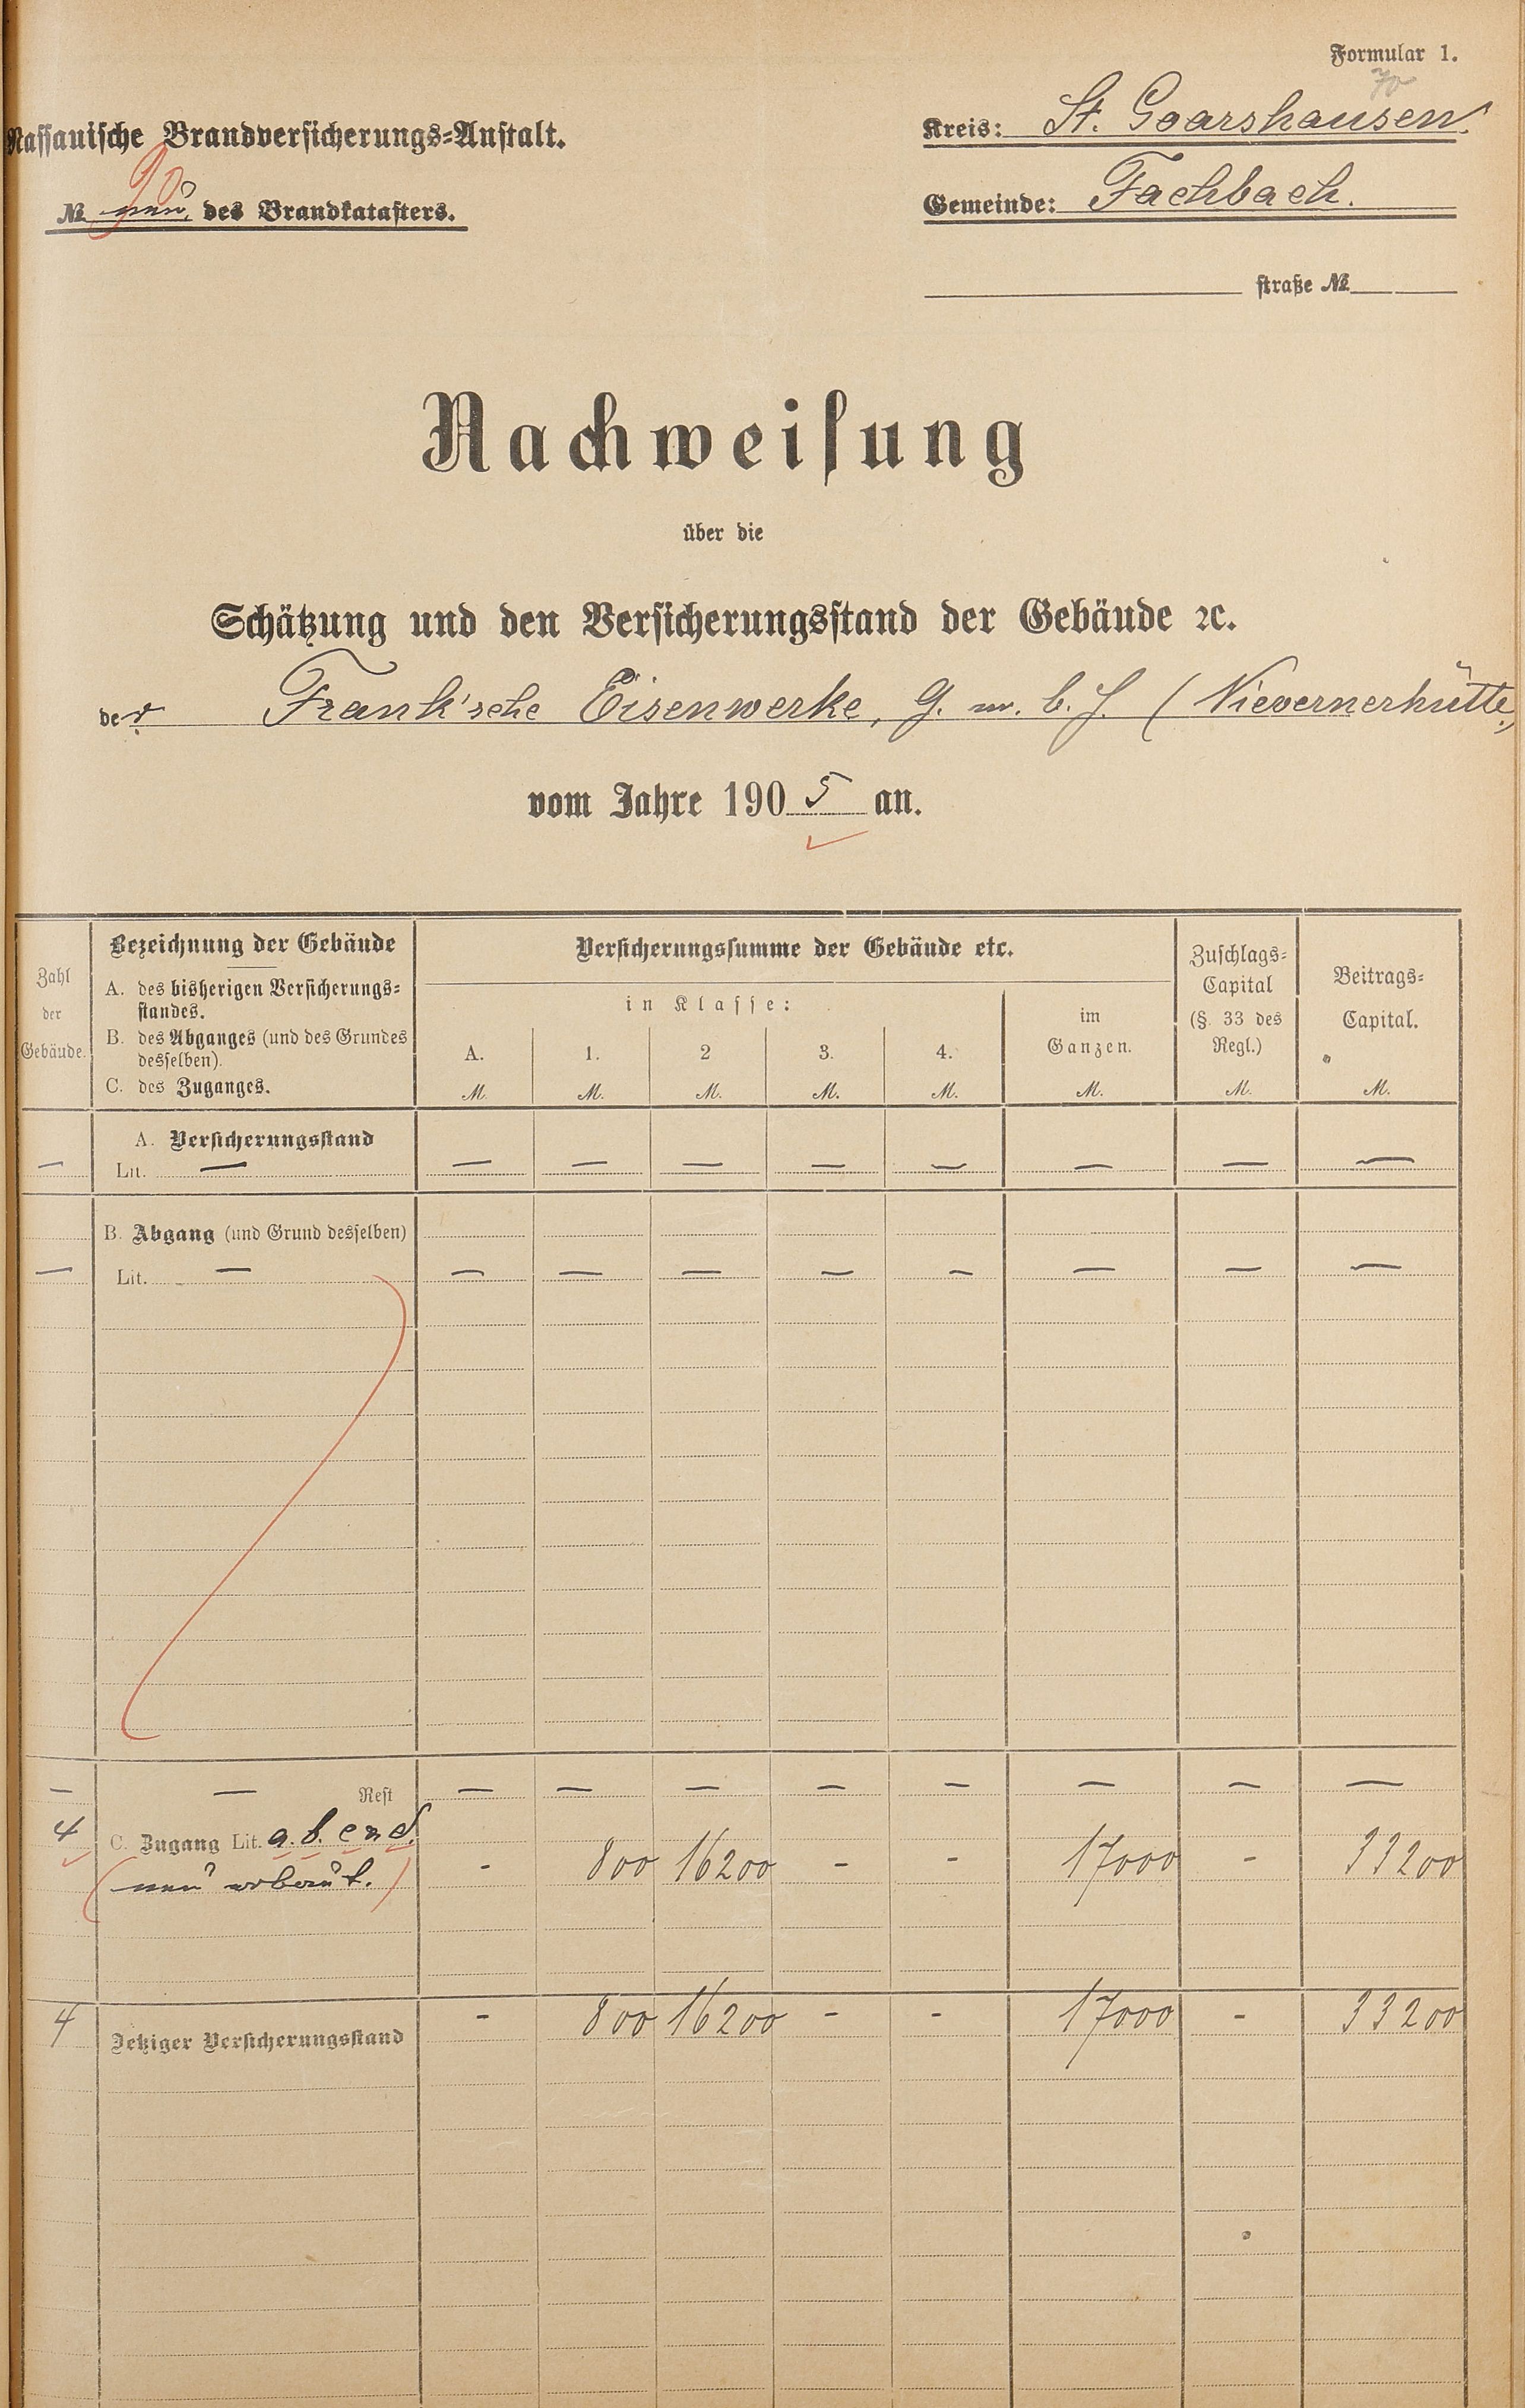 Formular 1.
70
Nassauische Brandversicherungs-Anstalt.
Kreis: St. Goarshausen.
90
№ neu, des Brandkatasters.
Gemeinde: Fachbach.
straße №
Nachweisung
über die
Schätzung und den Versicherungsstand der Gebäude ꝛc.
der Frank'sche Eisenwerke, G. m. b. H. (Nievernerhütte.)
vom Jahre 1905 an.
Zahl der Gebäude.
Bezeichnung der Gebäude
A. des bisherigen Versicherungs-
standes.
B. des Abganges (und des Grundes
desselben).
C. des Zuganges.
Versicherungssumme der Gebäude etc.
in Klasse:
A. 1. 2 3. 4.
M. M. M. M. M.
im
Ganzen.
M.
Zuschlags-
Capital
(§. 33 des
Regl.)
M.
Beitrags-
Capital.
M.
A. Versicherungsstand
— Lit. — — — — — — — — —
B. Abgang (und Grund desselben)
— Lit. — — — — — — — — —
— — Rest — — — — — — — —
4 C. Zugang Lit. a. b. c n d.
(neu erbaut.) - 800 16200 - - 17000 - 33200
4 Jetziger Versicherungsstand - 800 16200 - - 17000 - 33200